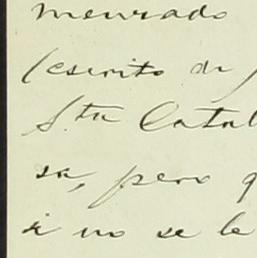 menrado
(escrito de
Sta Catal
sa, pero q
si no se le